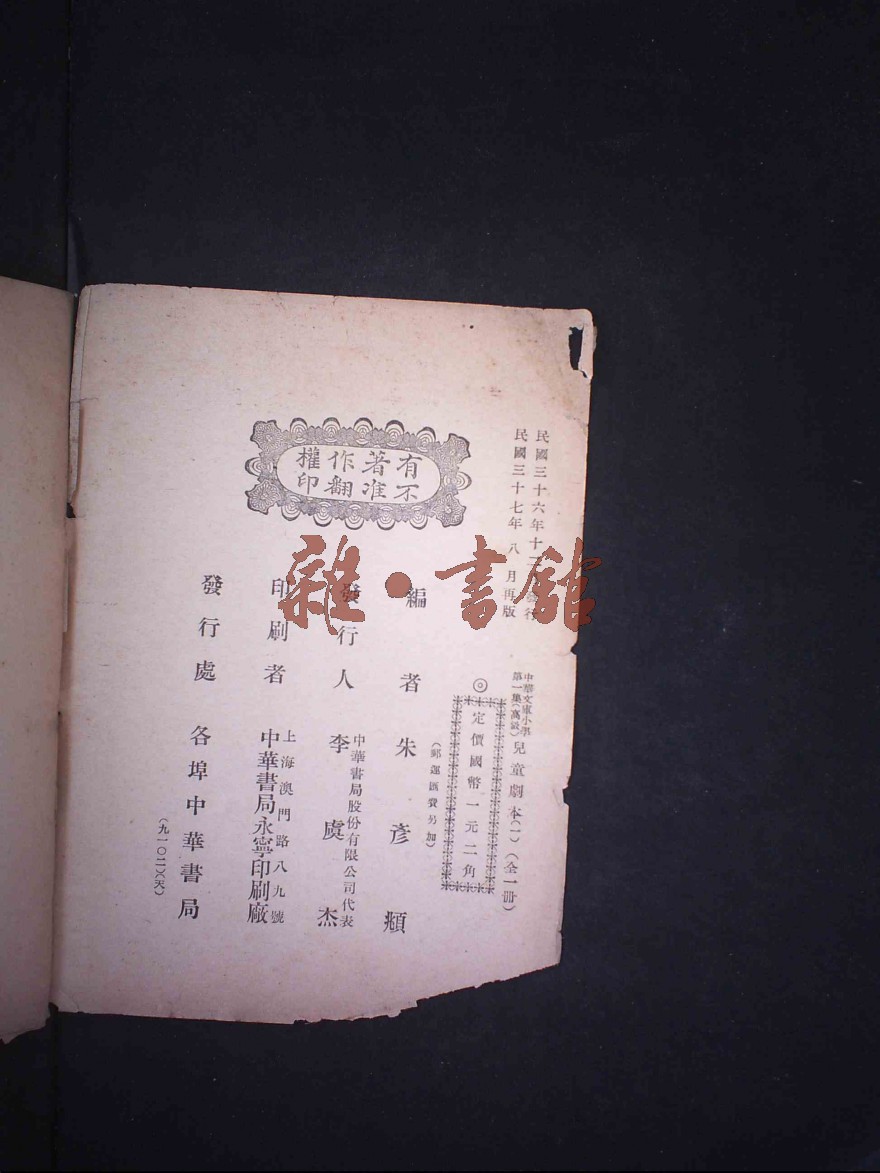 民國三十六年十二月發行
民國三十七年八月再版
中華文庫小學
第一集(高級)
兒童劇本(一)(全一冊)
◎定價國幣一元二角
(郵運匯費另加)
有著作權
不准翻印
編者 朱彥頫
發行人
中華書局股份有限公司代表
李虞杰
印刷者
上海澳門路八九號
中華書局永寧印刷廠
發行處 各埠中華書局
(九一〇二)(天)
雜·書館